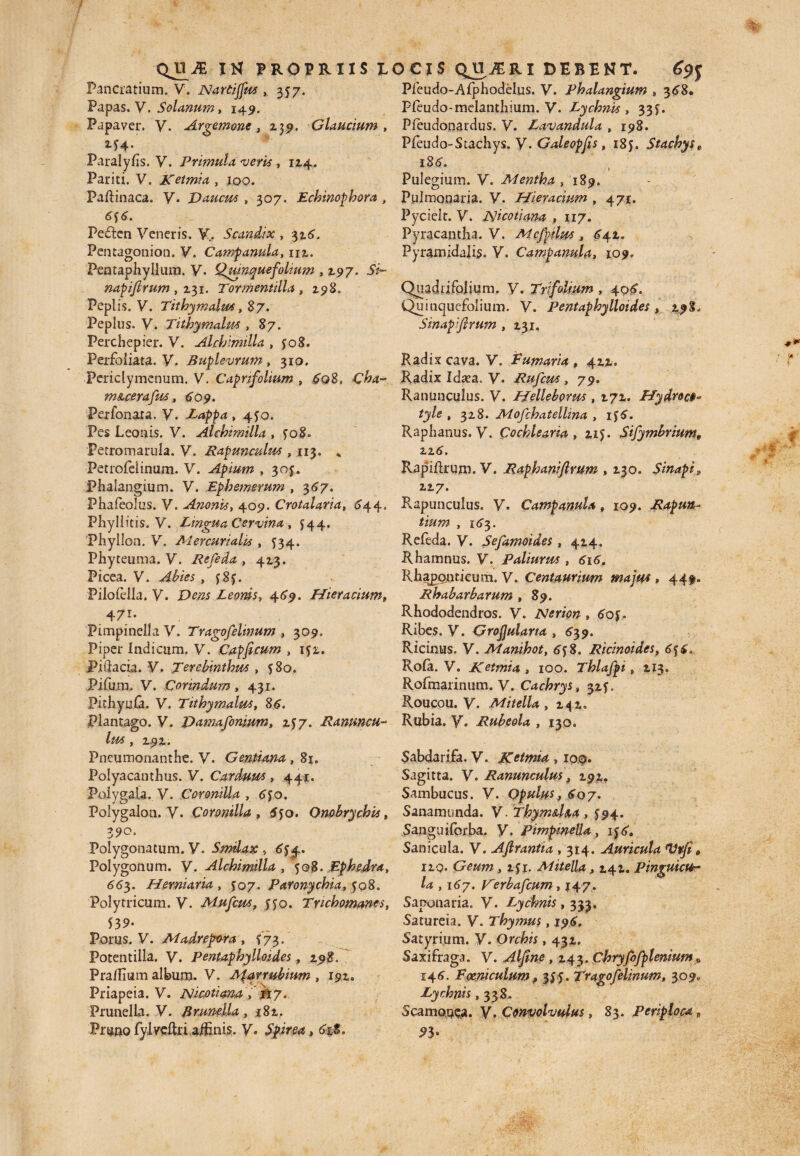 QUÆ IN PROPRIIS LOCIS QUÆRI DEBENT. 695
Pancratium. V. Narcissus, 357.
Papas. V. Solanum, 149.
Papaver. V. Argemone, 239. Glaucium,
254.
Paralyſis. V. Primula veris, 124.
Pariti. V. Ketmia, 100.
Paſtinaca. V. Daucus, 307. Echinophora,
656.
Pecten Veneris. V. Scandix, 326.
Pentagonion. V. Campanula, 112.
Pentaphyllum. V. Quinquefolium, 297. Si-
napiſtrum, 231. Tormentilla, 298.
Peplis. V. Tithymalus, 87.
Peplus. V. Tithymalus, 87.
Perchepier. V. Alchimilla, 508.
Perfoliata. V. Buplevrum, 310.
Periclymenum. V. Caprifolium, 608. Cha-
mæceraſus, 609.
Perſonata. V. Lappa, 450.
Pes Leonis. V. Alchimilla, 508.
Petromarula. V. Rapunculus, 113.
Petroſelinum. V. Apium, 305.
Phalangium. V. Ephemerum, 367.
Phaſeolus. V. Anonis, 409. Crotalaria, 644.
Phyllitis. V. Lingua Cervina, 544.
Phyllon. V. Mercurialis, 534.
Phyteuma. V. Reſeda, 423.
Picea. V. Abies, 585.
Piloſella. V. Dens Leonis, 469. Hieracium,
471.
Pimpinella V. Tragoſelinum, 309.
Piper Indicum. V. Capſicum, 152.
Piſtacia. V. Terebinthus, 580.
Piſum. V. Corindum, 431.
Pithyuſa. V. Tithymalus, 86.
Plantago. V. Damaſonium, 257. Ranuncu-
lus, 292.
Pneumonanthe. V. Gentiana, 81.
Polyacanthus. V. Carduus, 441.
Polygala. V. Coronilla, 650.
Polygalon. V. Coronilla, 650. Onobrychis,
390.
Polygonatum. V. Smilax, 654.
Polygonum. V. Alchimilla, 508. Ephedra,
663. Herniaria, 507. Paronychia, 508.
Polytricum. V. Muſcus, 550. Trichomanes,
539.
Porus. V. Madrepora, 573.
Potentilla. V. Pentaphylloides, 298.
Praſſium album. V. Marrubium, 192.
Priapeia. V. Nicotiana, 117.
Prunella. V. Brunella, 182.
Pruno ſylveſtri affinis. V. Spiræa, 618.
Pſeudo-Aſphodelus. V. Phalangium, 368.
Pſeudo-melanthium. V. Lychnis, 335.
Pſeudonardus. V. Lavandula, 198.
Pſeudo-Stachys. V. Galeopſis, 185. Stachys,
186.
Pulegium. V. Mentha, 189.
Pulmonaria. V. Hieracium, 471.
Pycielt. V. Nicotiana, 117.
Pyracantha. V. Meſpilus, 642.
Pyramidalis. V. Campanula, 109.
Quadrifolium. V. Trifolium, 406.
Quinquefolium. V. Pentaphylloides, 298.
Sinapiſtrum, 231.
Radix cava. V. Fumaria, 422.
Radix Idæa. V. Ruſcus, 79.
Ranunculus. V. Helleborus, 272. Hydroco-
tyle, 328. Moſchatellina, 156.
Raphanus. V. Cochlearia, 215. Siſymbrium,
226.
Rapiſtrum. V. Raphaniſtrum, 230. Sinapi,
227.
Rapunculus. V. Campanula, 109. Rapun-
tium, 163.
Reſeda. V. Seſamoides, 424.
Rhamnus. V. Paliurus, 616.
Rhaponticum. V. Centaurium majus, 449.
Rhabarbarum, 89.
Rhododendros. V. Nerion, 605.
Ribes. V. Groſſularia, 639.
Ricinus. V. Manihot, 658. Ricinoides, 656.
Roſa. V. Ketmia, 100. Thlaſpi, 213.
Roſmarinum. V. Cachrys, 325.
Roucou. V. Mitella, 242.
Rubia. V. Rubeola, 130.
Sabdarifa. V. Ketmia, 100.
Sagitta. V. Ranunculus, 292.
Sambucus. V. Opulus, 607.
Sanamunda. V. Thymelæa, 594.
Sanguiſorba. V. Pimpinella, 156.
Sanicula. V. Aſtrantia, 314. Auricula Vrſi,
120. Geum, 251. Mitella, 242. Pinguicu-
la, 167. Verbaſcum, 147.
Saponaria. V. Lychnis, 333.
Satureia. V. Thymus, 196.
Satyrium. V. Orchis, 432.
Saxifraga. V. Alſine, 243. Chryſoſplenium,
146. Fœniculum, 355. Tragoſelinum, 309.
Lychnis, 338.
Scamonea. V. Convolvulus, 83. Periploca,
93.